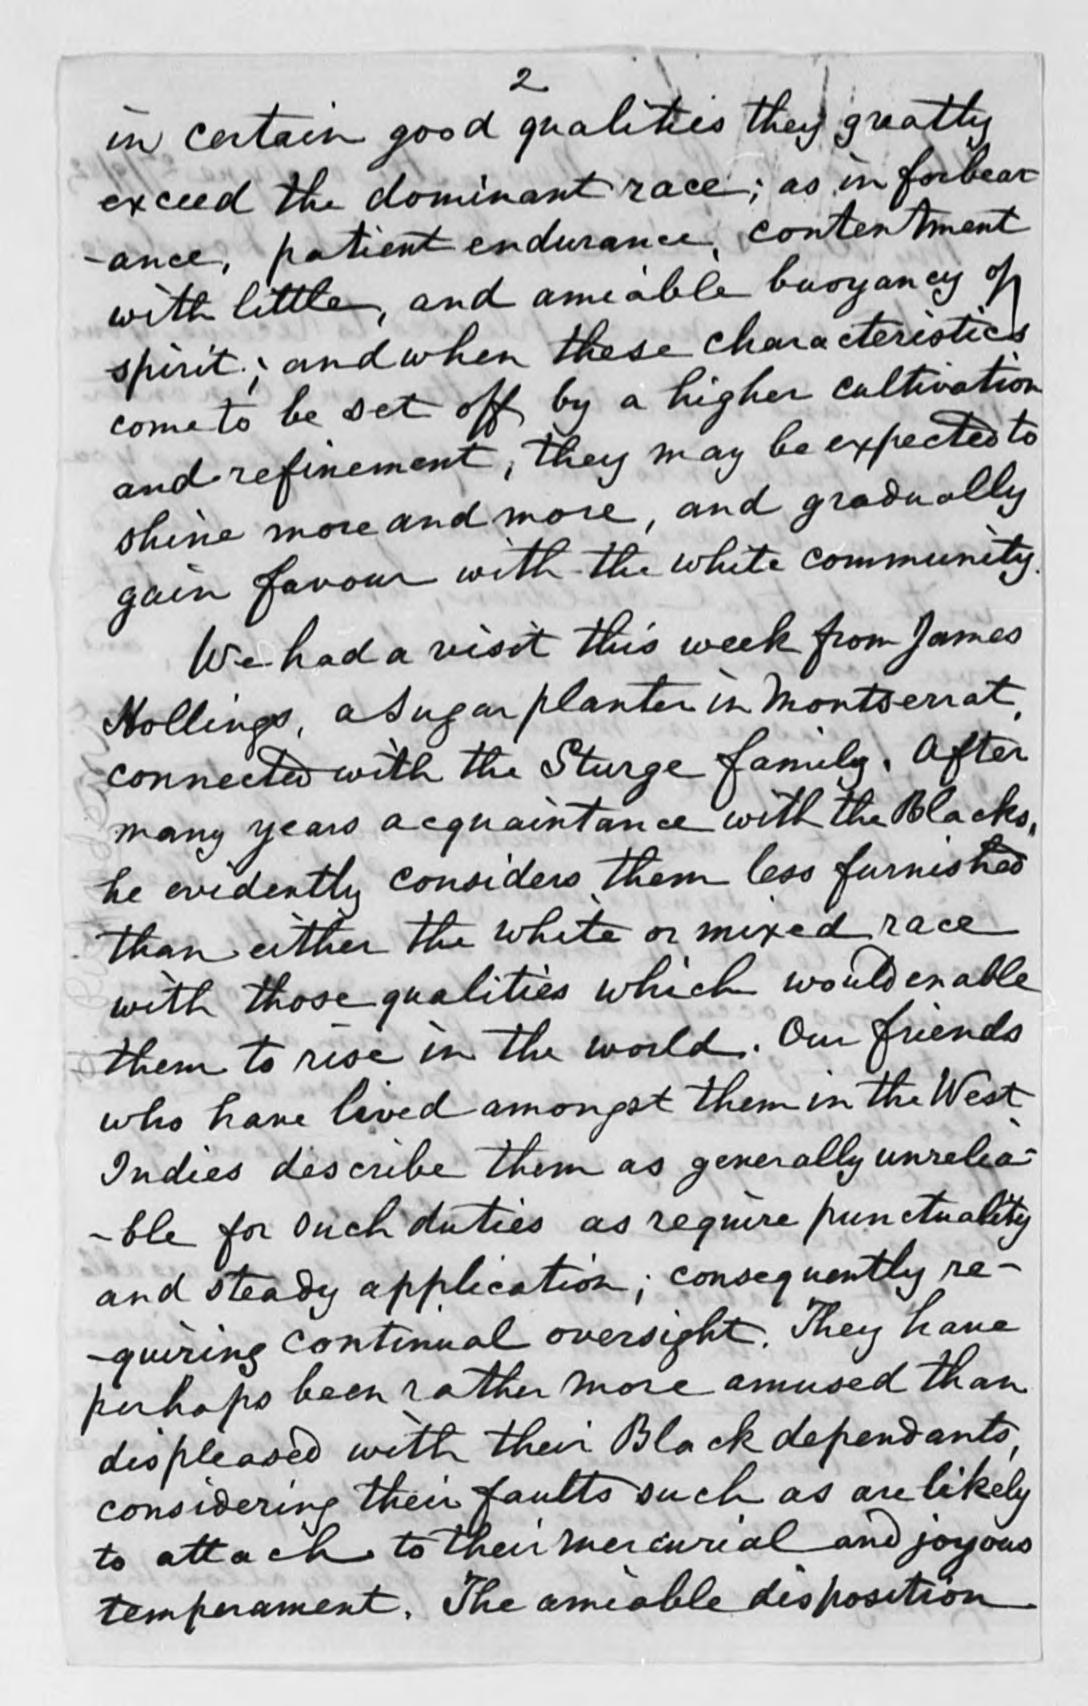 2
in certain good qualities they greatly
exceed the dominant race; as in forbear
-ance, patient endurance, contentment
with little, and amiable buoyancy of
spirit; and when these characteristics
come to be set off by a higher cultivation
and refinement, they may be expected to
shine more and more, and gradually
gain favour with the white community.
We had a visit this week from James
Hollings, a sugar planter in Montserrat,
connected with the Sturge family. After
many years acquaintance with the Blacks,
he evidently considers them less furnished
than either the white or mixed race
with those qualities which would enable
them to rise in the world. Our friends
who have lived amongst them in the West
Indies describe them as generally unrelia-
-ble for such duties as require punctuality
and steady application; consequently re-
-quiring continual oversight. They have
perhaps been rather more amused than
displeased with their Black dependants,
considering their faults such as are likely
to attach to their mercurial and joyous
temperament. The amiable disposition